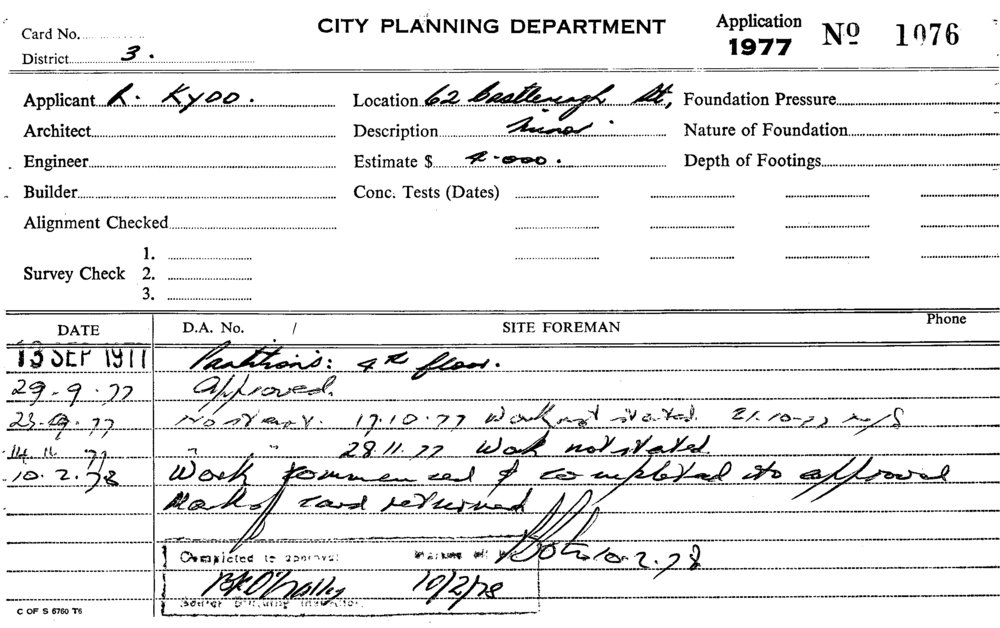 CITY PLANNING DEPARTMENT
Application
1977 Nº 1076
Card No.
District 3.
Applicant R. Kydd.
Location 62 Castlereagh St,
Foundation Pressure
Architect
Description Minor
Nature of Foundation
Engineer
Estimate $ 4.000.
Depth of Footings
Builder
Conc. Tests (Dates)
Alignment Checked
Survey Check
1.
2.
3.
DATE D.A. No. / SITE FOREMAN Phone
13 SEP 1977 Partitions: 4th floor.
29-9-77 Approved.
77 No start. 17.10.77 Work not started. 21.10.77 N/S
14.11.77 " " 28.11.77 Work not started
10.2.78 Work commenced & completed to approval
card returned
10.2.78
Completed to approval
10/2/78
Senior Building Inspector
C OF S 6760 T6